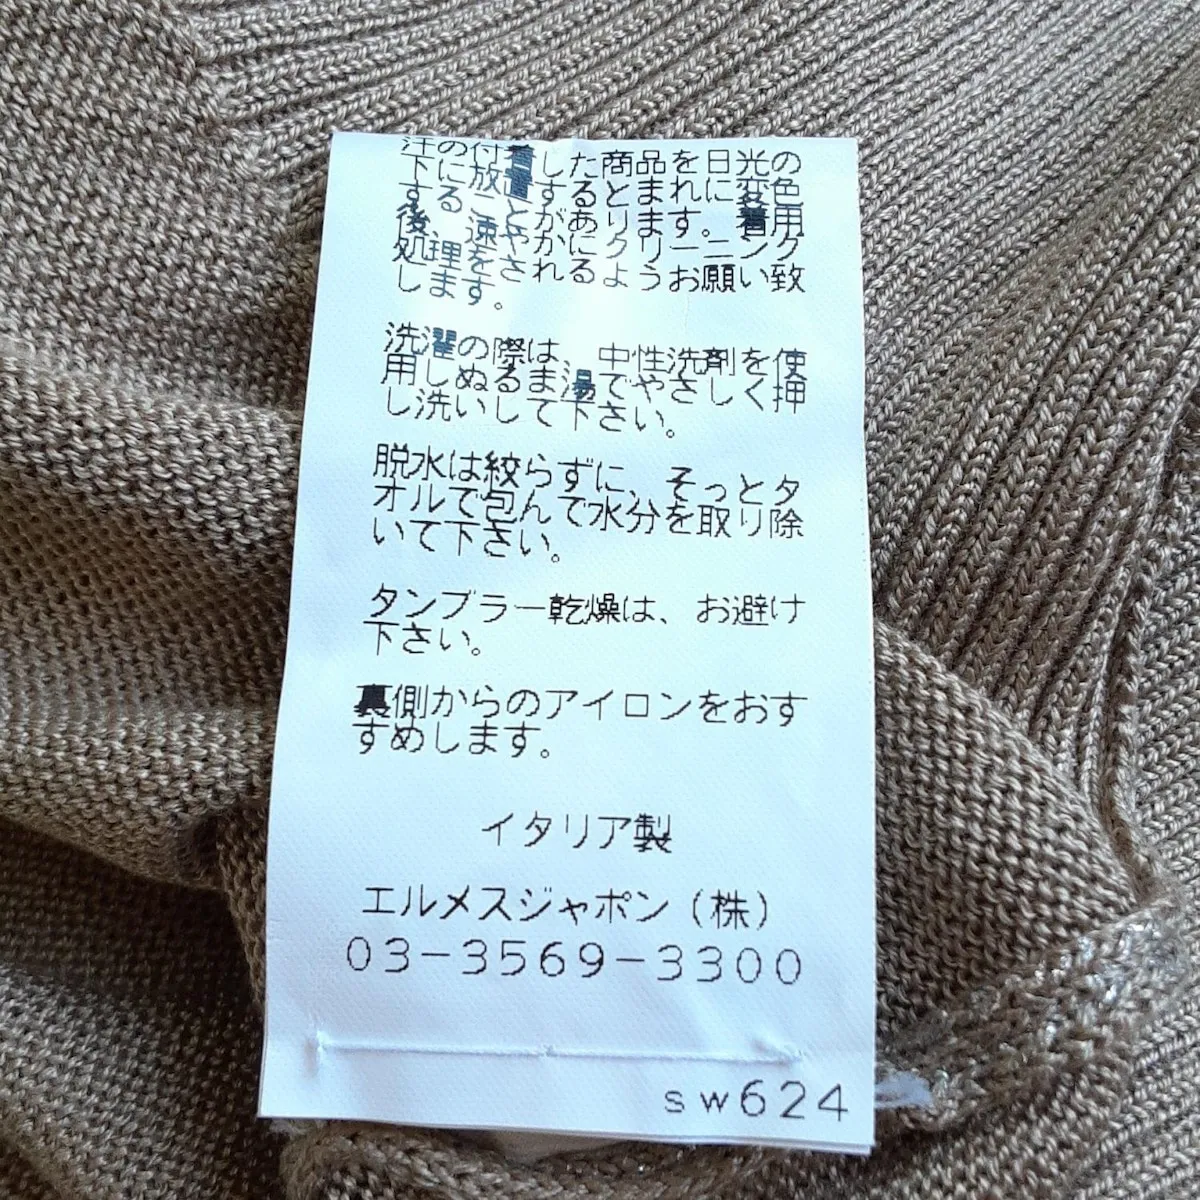 汗の付着した商品を日光の
下に放置するとまれに変色
することがあります。着用
後、速やかにクリーニング
処理をされるようお願い致
します。
洗濯の際は、中性洗剤を使
用しぬるま湯でやさしく押
し洗いして下さい。
脱水は絞らずに、そっとタ
オルで包んで水分を取り除
いて下さい。
タンブラー乾燥は、お避け
下さい。
裏側からのアイロンをおす
すめします。
イタリア製
エルメスジャポン(株)
03-3569-3300
sw624